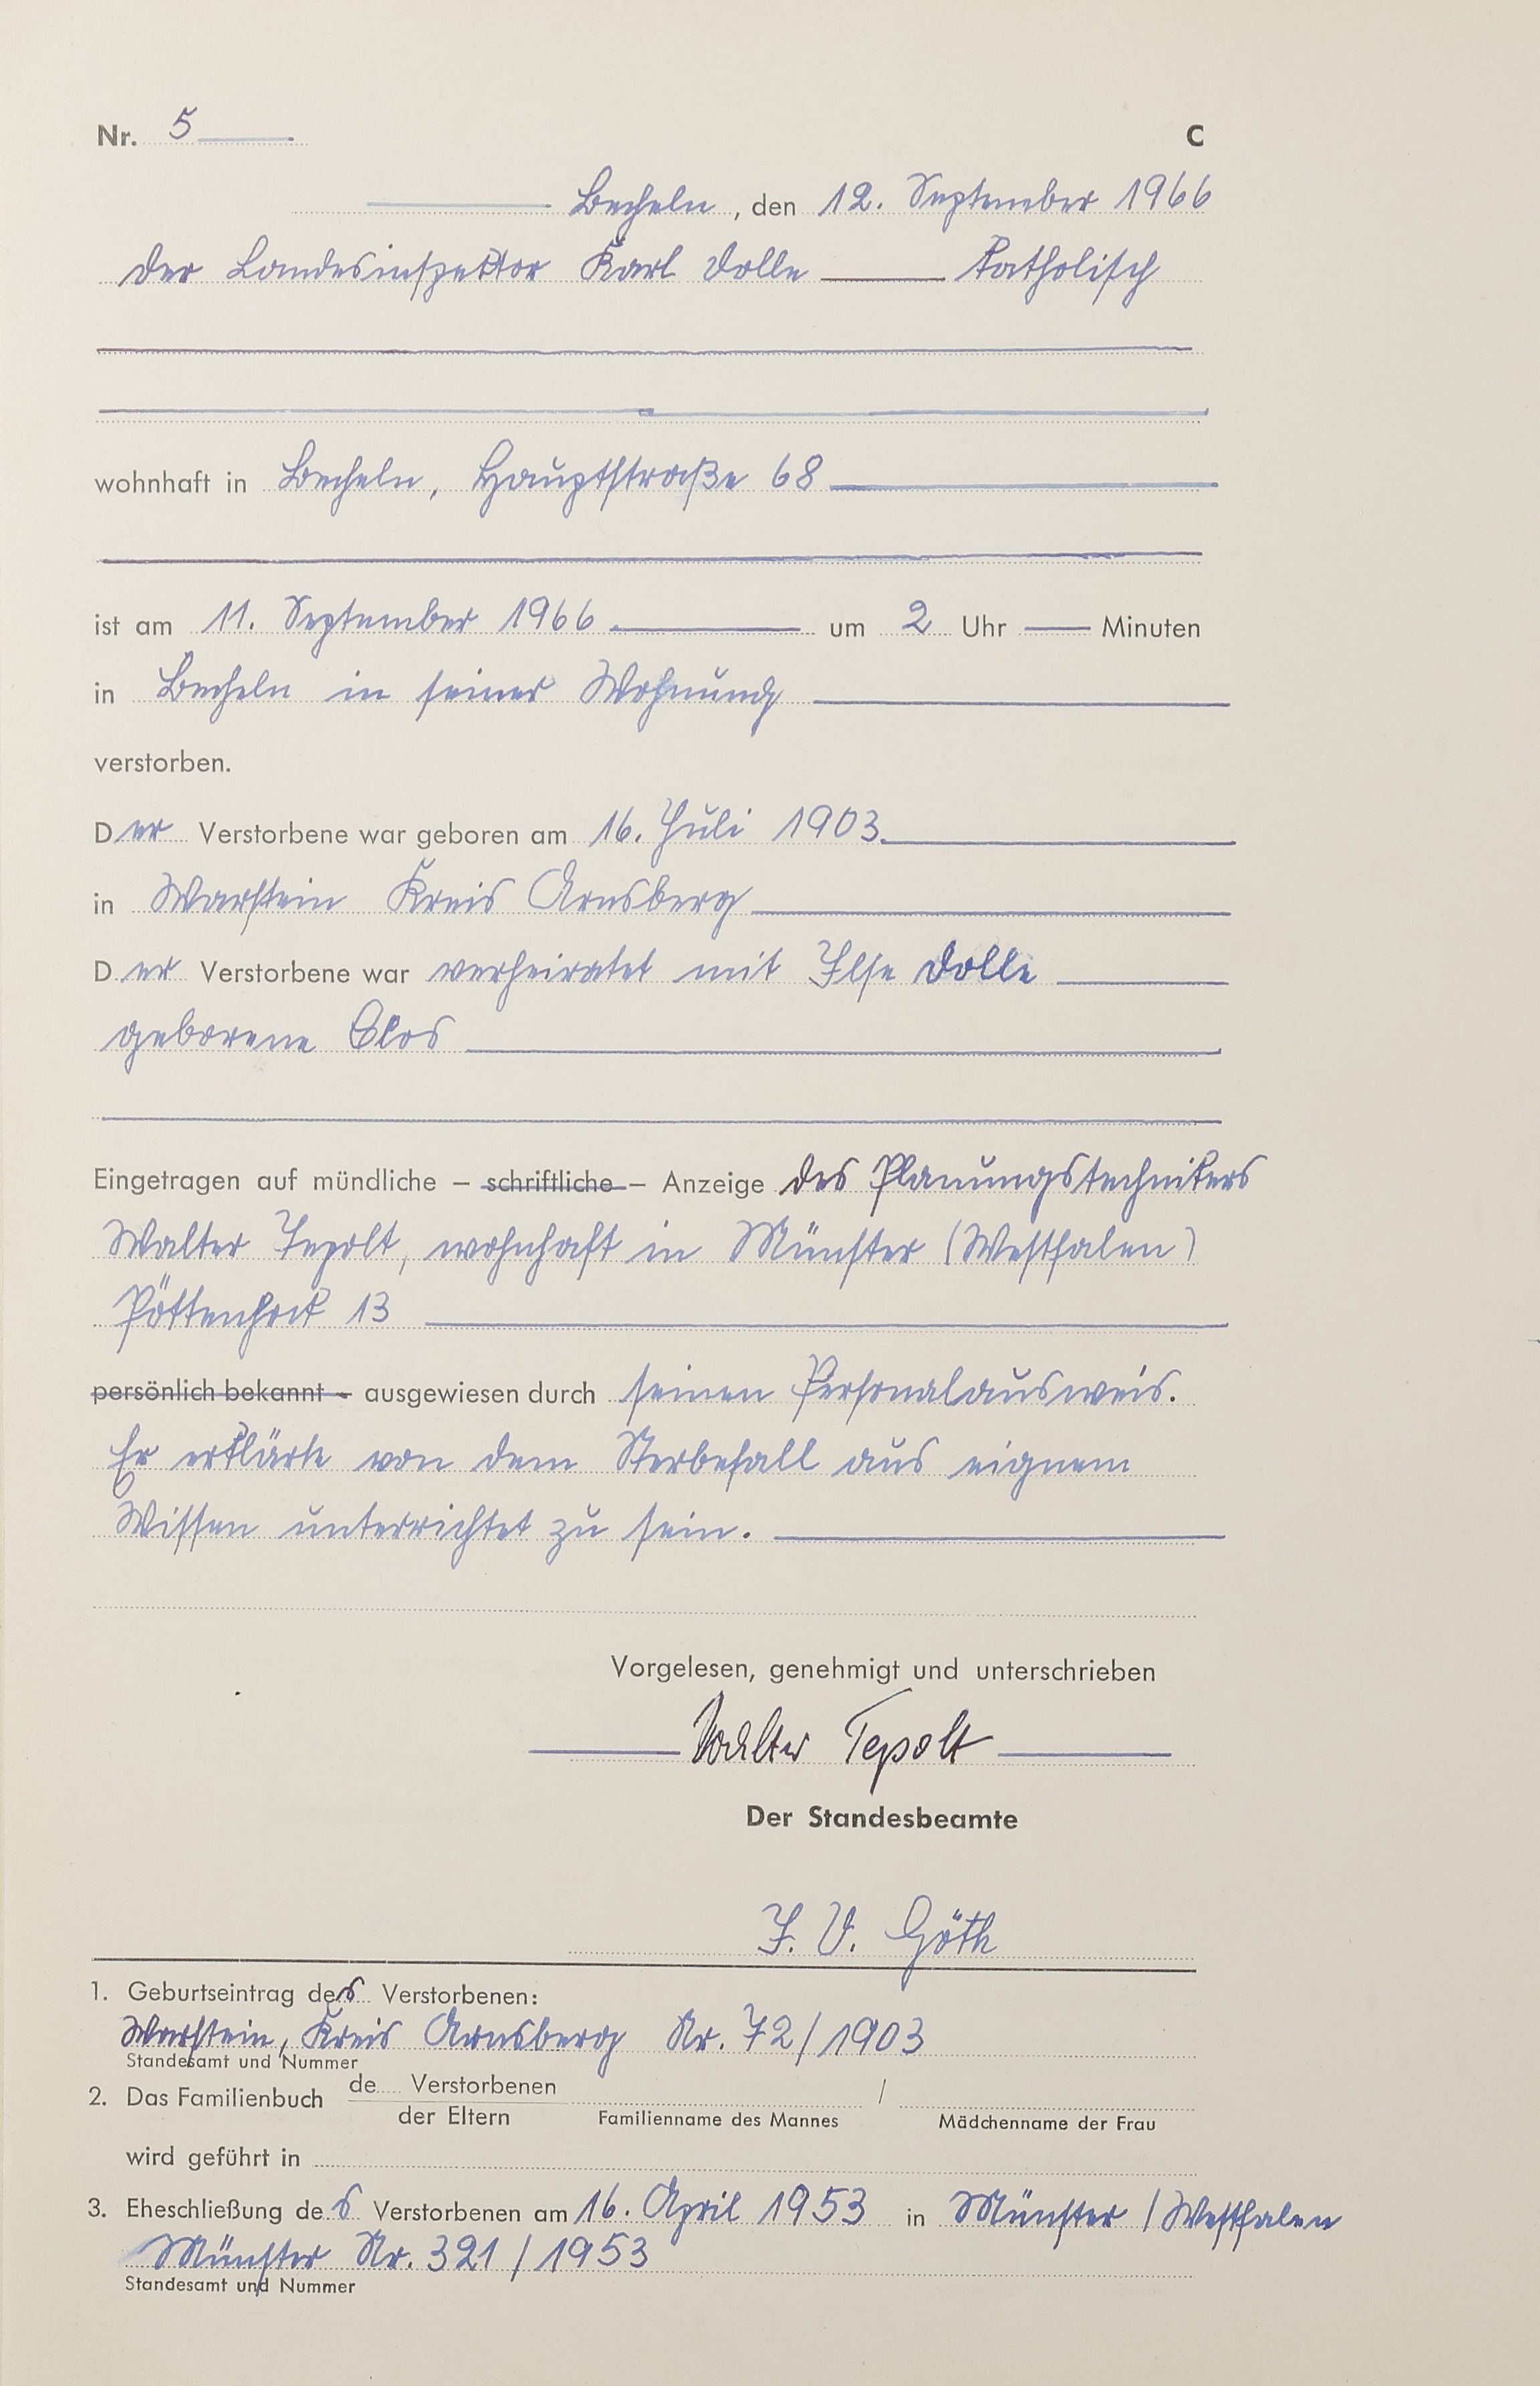 Nr. 5 C
Becheln, den 12. September 1966
der Landesinspektor Karl Dolle katholisch
wohnhaft in Becheln, Hauptstraße 68
ist am 11. September 1966 um 2 Uhr Minuten
in Becheln in seiner Wohnung
verstorben.
Der Verstorbene war geboren am 16. Juli 1903
in Warstein Kreis Arnsberg
Der Verstorbene war verheiratet mit Ilse Dolle
geborene Clos
Eingetragen auf mündliche – schriftliche – Anzeige des Planungstechnikers
Walter Tepolt, wohnhaft in Münster (Westfalen)
13
persönlich bekannt – ausgewiesen durch seinen Personalausweis.
Er erklärte von dem Sterbefall aus eignem
Wissen unterrichtet zu sein.
Vorgelesen, genehmigt und unterschrieben
Walter Tepolt
Der Standesbeamte
I. V. Göth
1. Geburtseintrag des Verstorbenen:
Warstein, Kreis Arnsberg Nr. 72/1903
Standesamt und Nummer
2. Das Familienbuch de Verstorbenen /
der Eltern Familienname des Mannes Mädchenname der Frau
wird geführt in
3. Eheschließung des Verstorbenen am 16. April 1953 in Münster / Westfalen
Münster Nr. 321 / 1953
Standesamt und Nummer